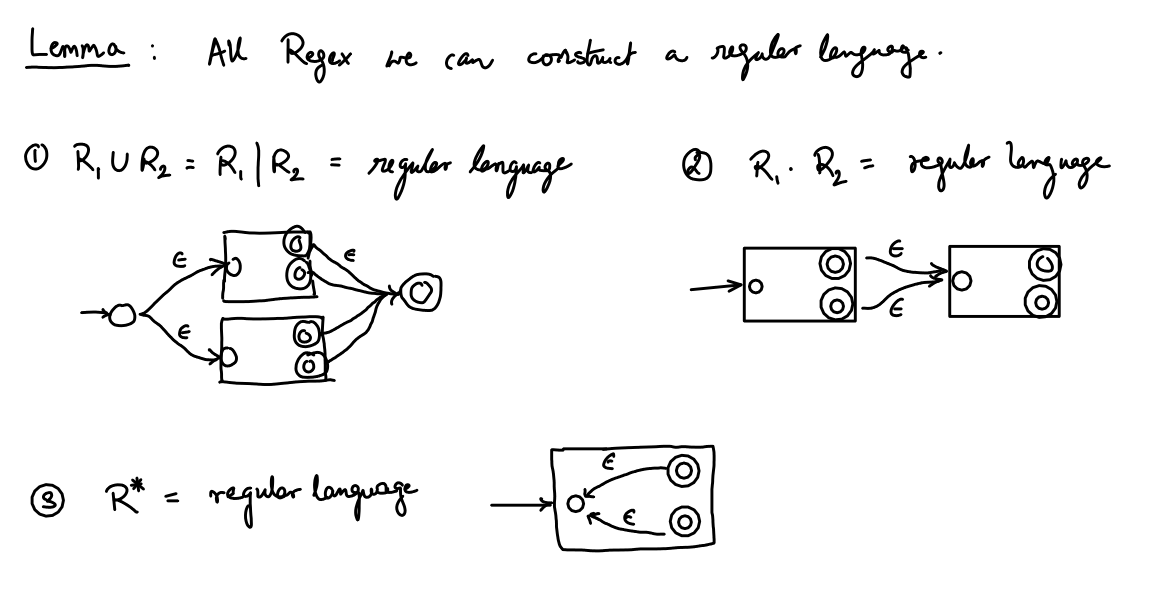 Lemma : All Regex we can construct a regular language.
① R₁ ∪ R₂ = R₁ | R₂ = regular language
② R₁ . R₂ = regular language
ϵ ϵ
ϵ
ϵ
ϵ
③ R* = regular language
ϵ
ϵ